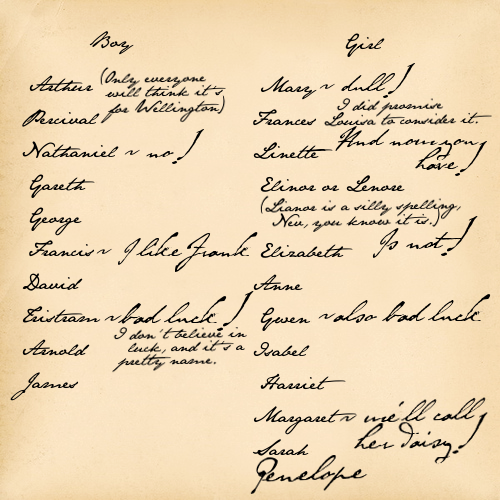 Boy
Arthur (Only everyone
will think it's
for Wellington)
Percival
Nathaniel ~ no!
Gareth
George
Francis ~ I like Frank.
David
Tristram ~ bad luck!
I don't believe in
luck, and it's a
pretty name.
Arnold
James
Girl
Mary ~ dull!
I did promise
Frances Louisa to consider it.
Linette And now you
have!
Elinor or Lenore
(Lianor is a silly spelling,
Nev, you know it is.)
Elizabeth Is not!
Anne
Gwen ~ also bad luck.
Isabel
Harriet
Margaret ~ we'll call
her Daisy!
Sarah
Penelope